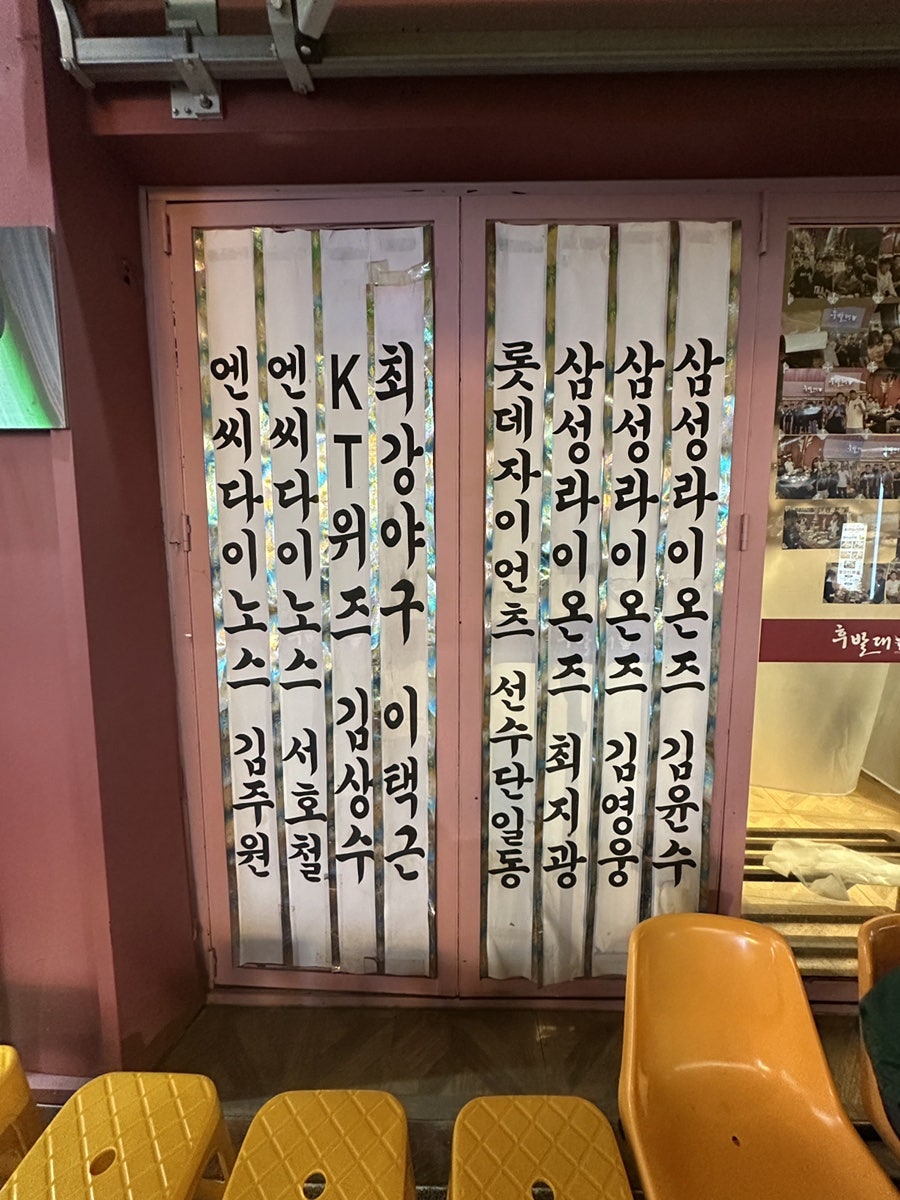 엔씨다이노스 김주원
엔씨다이노스 서호철
KT위즈 김상수
최강야구 이택근
롯데자이언츠 선수단일동
삼성라이온즈 최지광
삼성라이온즈 김영웅
삼성라이온즈 김윤수
후발대